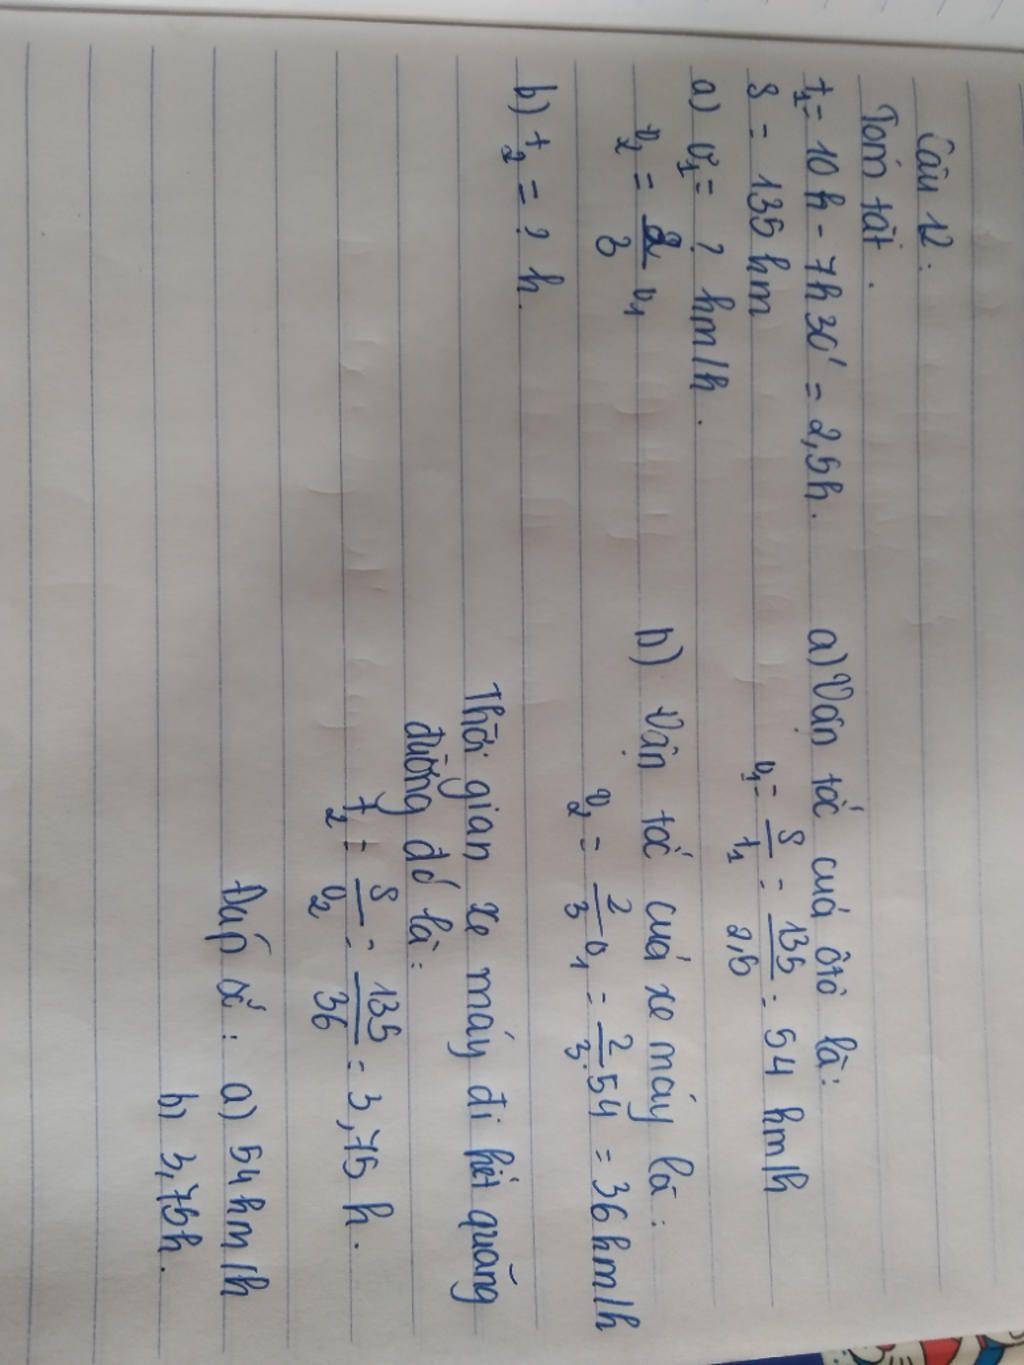 Câu 12:
Tóm tắt.
t₁ = 10h - 7h30' = 2,5h.
S = 135 km
a) v₁ = ? km/h.
v₂ = 2/3 v₁
b) t₂ = ? h.
a) Vận tốc của ôtô là:
v₁ = S/t₁ = 135/2,5 = 54 km/h
b) Vận tốc của xe máy là:
v₂ = 2/3 v₁ = 2/3.54 = 36 km/h
Thời gian xe máy đi hết quãng
đường đó là:
t₂ = S/v₂ = 135/36 = 3,75 h.
Đáp số: a) 54 km/h
b) 3,75h.